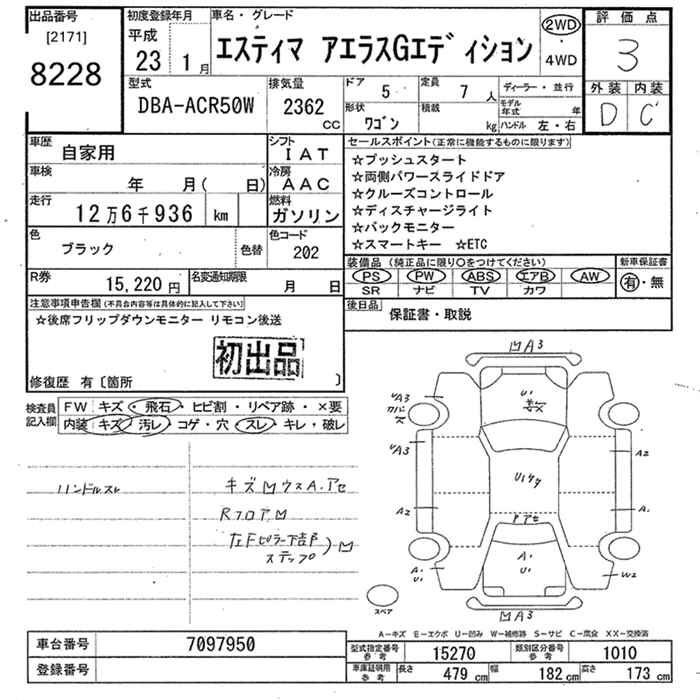 出品番号
[2171]
8228
初度登録年月
平成
23 1月
車名・グレード
エスティマ アエラスGエディション
2WD
・
4WD
評価点
3
外装 内装
D C'
型式
DBA-ACR50W
排気量
2362
CC
ドア 5
定員 7人
形状
ワゴン
積載 kg
ディーラー・並行
モデル年式 年
ハンドル 左・右
車歴
自家用
シフト
IAT
車検
年 月( 日)
冷房
AAC
走行
12万6千936 km
燃料
ガソリン
色
ブラック
色替
色コード
202
R券
15,220円
名変通知期限
月 日
セールスポイント(正常に機能するものに限ります)
☆プッシュスタート
☆両側パワースライドドア
☆クルーズコントロール
☆ディスチャージライト
☆バックモニター
☆スマートキー ☆ETC
装備品(純正品に限り○をつけてください)
PS PW ABS エアB AW
SR ナビ TV カワ
新車保証書
有・無
後日品
保証書・取説
注意事項申告欄(不具合内容等は具体的に記入して下さい)
☆後席フリップダウンモニター リモコン後送
初出品
修復歴 有〔箇所 〕
検査員
記入欄
FW キズ・飛石・ヒビ割・リペア跡・×要
内装 キズ 汚レ・コゲ・穴 スレ・キレ・破レ
ハンドルスレ
キズ凹ウスA.アセ
Rフロア凹
左Fピラー下部
ステップ
凹
凹A3
UA3
カバー
ス
U1
UA3
A2
A2
A.
U1ケタ
PアセA.
U1
A.
U1
W2
凹A3
スペア
A-キズ E-エクボ U-凹み W-補修跡 S-サビ C-腐食 XX-交換済
車台番号
7097950
登録番号
型式指定番号
参考
15270
類別区分番号
参考
1010
車庫証明用
参考
長さ 479 cm 幅 182 cm 高さ 173 cm